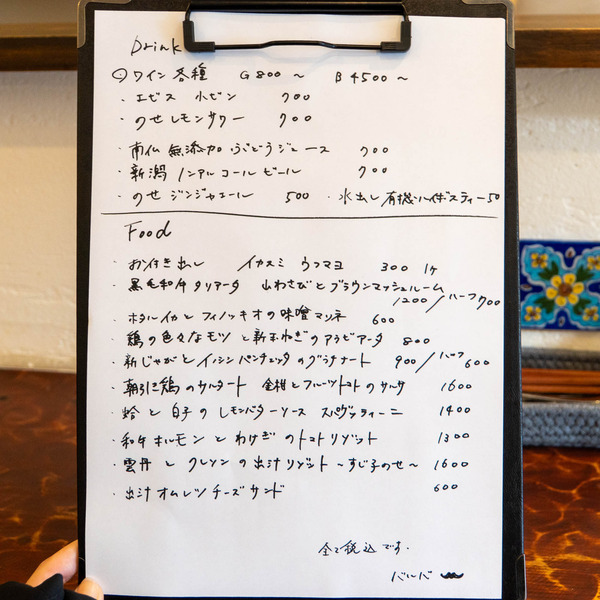 Drink
ワイン 各種 G 800 〜 B 4500 〜
・エビス 小ビン 700
・のせ レモンサワー 700
・南仏 無添加 ぶどうジュース 700
・新潟 ノンアルコールビール 700
・のせ ジンジャエール 500 ・水出し 有機ハイビスティー 50
Food
・お付き出し イカスミ ウフマヨ 300 1ヶ
・黒毛和牛 タリアータ 山わさびとブラウンマッシュルーム
1200 / ハーフ 700
・ホタルイカとフィノッキオの味噌マリネ 600
・鶏の色々なモツと新玉ねぎのアラビアータ 800
・新じゃがとイノシシパンチェッタのグラナート 900 / ハーフ 600
・朝引き鶏のサルタート 金柑とフルーツトマトのサルサ 1600
・蛤と白子のレモンバターソース スパゲッティーニ 1400
・和牛ホルモンとわけぎのトマトリゾット 1300
・雲丹とクレソンの出汁リゾット 〜すじ子のせ〜 1600
・出汁オムレツチーズサンド 600
全て税込です.
バルバ